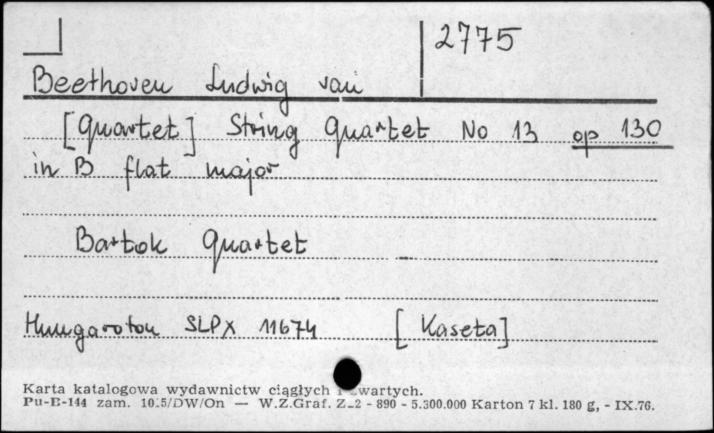 2775
Beethoven Ludwig van
[Quartet] String Quartet No 13 op 130
in B flat major
Bartok Quartet
Hungaroton SLPX 11674 [Kaseta]
Karta katalogowa wydawnictw ciągłych i zwartych.
Pu-B-144 zam. 1015/DW/On — W.Z.Graf. Z-2 - 890 - 5.300.000 Karton 7 kl. 180 g, - IX.76.